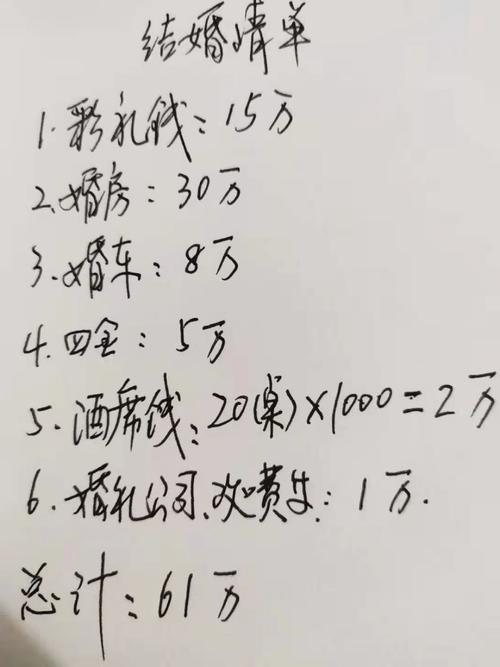 结婚清单
1.彩礼钱：15万
2.婚房：30万
3.婚车：8万
4.四金：5万
5.酒席钱：20(桌)×1000=2万
6.婚礼公司、：1万.
总计：61万